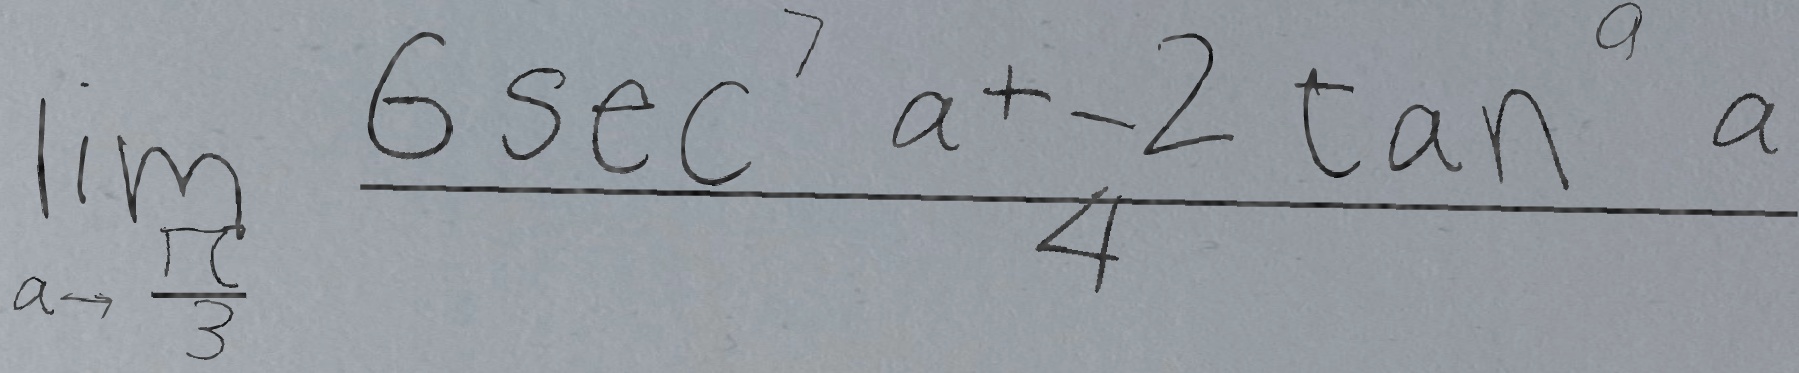 \lim_{a \to \frac{\pi}{3}} \frac{6 \sec^{7} a + -2 \tan^{9} a}{4}